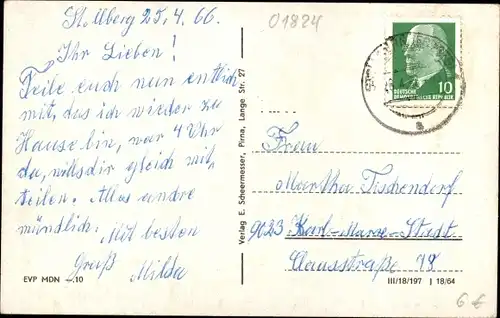 Stollberg 25.4.66.
01824
Ihr Lieben!
Teile euch nun entlich
mit, das ich wieder zu
Hause bin, war 4 Uhr
da, will dir gleich mit
teilen. Alles andre
mündlich. Mit besten
Gruß Milda
EVP MDN –,10
Verlag E. Scheermesser, Pirna, Lange Str. 27
10
DEUTSCHE
DEMOKRATISCHE REPUBLIK
Frau
Martha Tischendorf
9023 Karl-Marx-Stadt
Clausstraße 78
III/18/197 | 18/64
6€